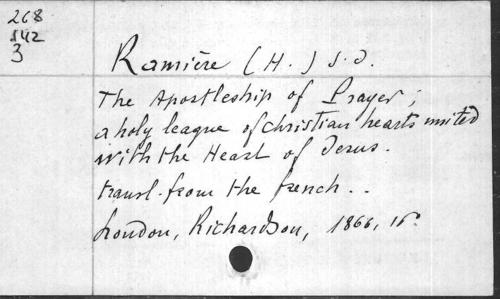 268
142
3
Ramière (H.) s.J.
The Apostleship of Prayer;
a holy league of christian hearts united
with the Heart of Jesus.
transl. from the french..
London, Richardson, 1866, 16°